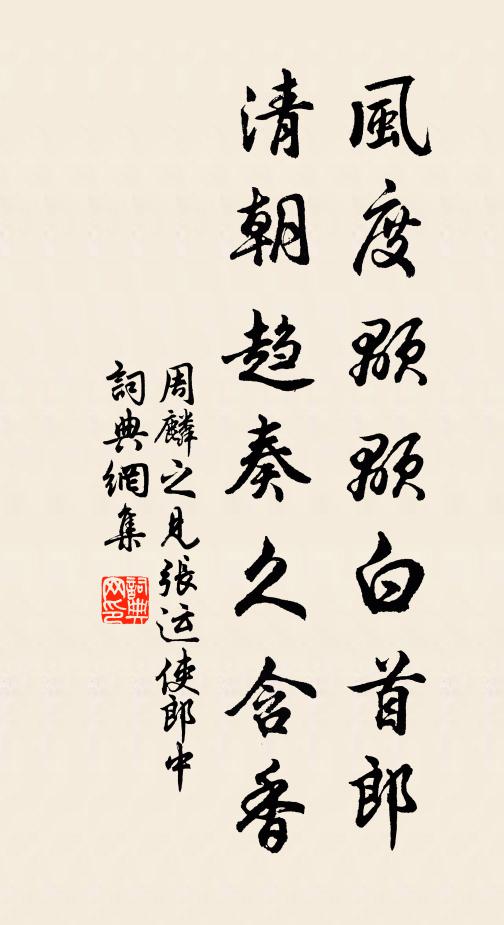 風度顒顒白首郎
清朝趋奏久含香
周麟之見張运使郎中
詞典網集
詞典
网印